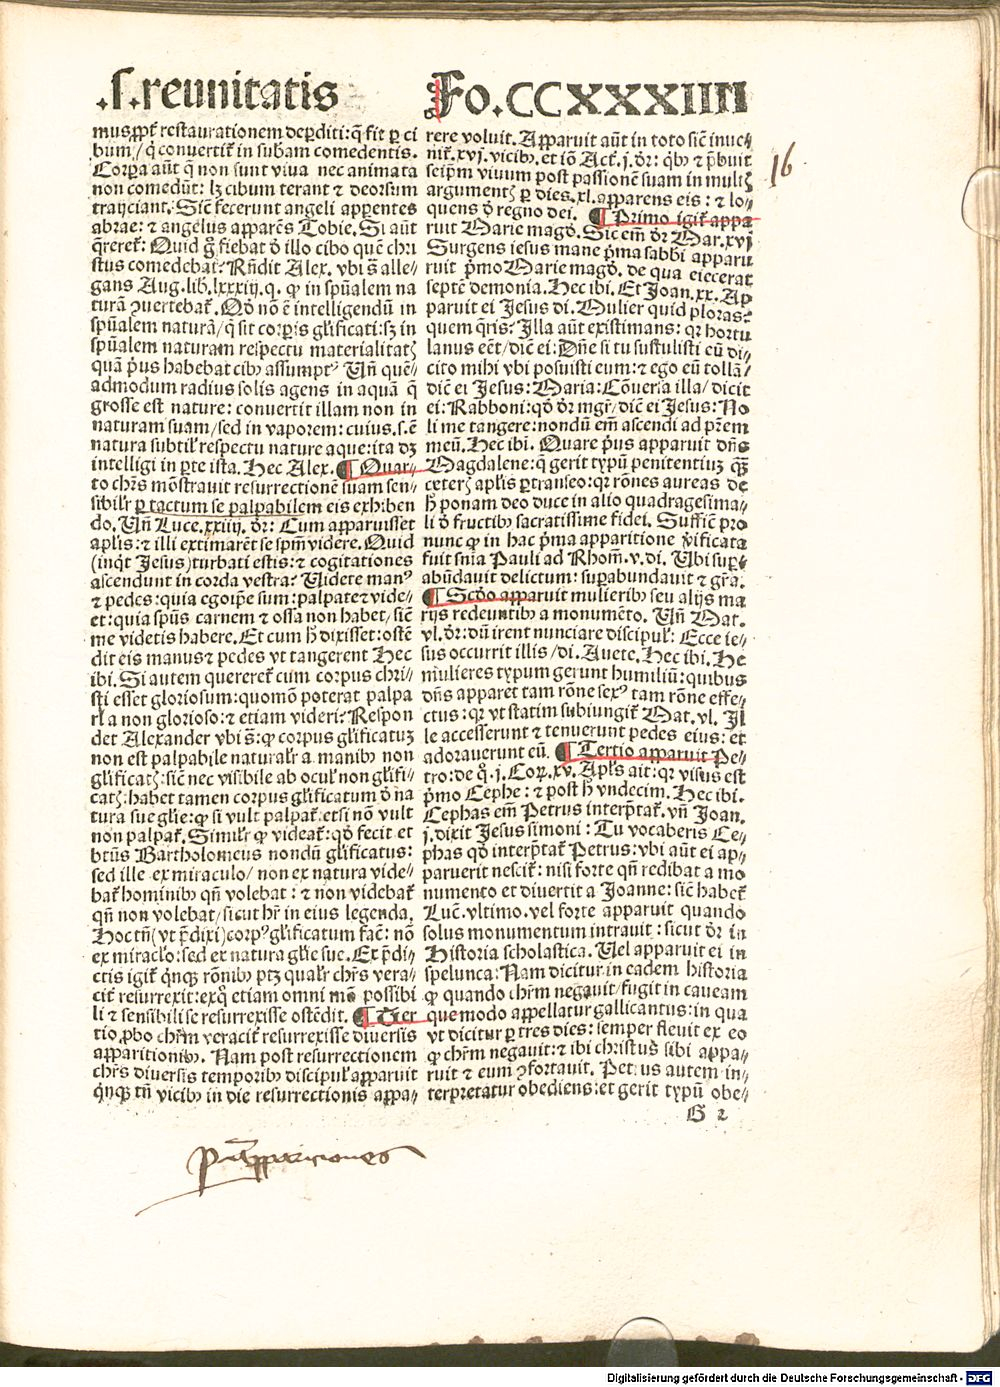 .s.reunitatis
Fo.CCXXXIIII
16
mus,ppt̄ restaurationem deperditi: q̄ fit per ci
bum/ q̄ conuertit̄ in subam comedentis.
Corpora aūt q̄ non sunt viua nec animata
non comedūt: lꝫ cibum terant & deorsum
traijciant. Sic̄ fecerunt angeli apparentes
abrae: & angelus apparēs Tobie. Si aūt
q̄reret̄: Quid g̊ fiebat ď illo cibo quē chri
stus comedebat? Rn̄dit Alex. vbi s̄ alle⸗
gans Aug. lib. lxxxiij. q. ꝙ in spūalem na
turā ꝯuertebat̄. Qď nō ē intelligendū in
spūalem naturā/ q̄ sit corporis gl̄ificati: sꝫ in
spūalem naturam respectu materialitatꝭ
quā pͥus habebat cibꝰ assumptꝰ Vn̄ quē⸗
admodum radius solis agens in aquā q̄
grosse est nature: conuertit illam non in
naturam suam/ sed in vaporem: cuius .s. ē
natura subtil̄ respectu nature aque: ita dꝫ
intelligi in parte ista. Hec Alex. ¶ Quar⸗
to chr̄s mōstrauit resurrectionē suam sen⸗
sibilr̄ per tactum se palpabilem eis exhiben
do. Vn̄ Luce. xxiiij. dr̄: Cum apparuisset
apl̄is: & illi extimarēt se spm̄ videre. Quid
(inq̄t Jesus) turbati estis: & cogitationes
ascendunt in corda vestra? Videte manꝰ
& pedes: quia egoip̄e sum: palpate & vide⸗
et: quia spūs carnem & ossa non habet/ sic̄
me videtis habere. Et cum h̄ dixisset: ostē
dit eis manus & pedes vt tangerent Hec
ibi. Si autem quereret̄ cum corpus chri⸗
sti esset gloriosum: quomō poterat palpa
ri a non glorioso: & etiam videri? Respon
det Alexander vbi s̄: ꝙ corpus gl̄ificatuꝫ
non est palpabile naturalr̄ a manibꝰ non
gl̄ificatꝭ: sic̄ nec visibile ab ocul̄ non gl̄ifi⸗
catꝭ: habet tamen corpus gl̄ificatum ď na
tura sue gl̄ie: ꝙ si vult palpat̄: etsi nō vult
non palpat̄. Similr̄ ꝙ videat̄: qď fecit et
btūs Bartholomeus nondū gl̄ificatus:
sed ille ex miraculo/ non ex natura vide⸗
bat̄ hominibꝰ qn̄ volebat: & non videbat̄
qn̄ non volebat/ sicut hr̄ in eius legenda.
Hoc tn̄ (vt p̄dixi) corpꝰ gl̄ificatum fac̄: nō
ex miracl̄o: sed ex natura gl̄ie sue. Ex p̄di⸗
ctis igit̄ qͥnqꝫ rōnibꝰ ptꝫ qualr̄ chr̄s vera⸗
cit̄ resurrexit: exq̄ etiam omni mō possibi
li & sensibili se resurrexisse ostēdit. ¶ Ter
tio ꝓbo chr̄m veracit̄ resurrexisse diuersis
apparitionibꝰ. Nam post resurrectionem
chr̄s diuersis temporibꝰ discipul̄ apparuit
qͥnqꝫ tn̄ vicibꝰ in die resurrectionis appa⸗
rere voluit. Apparuit aūt in toto sic̄ inue⸗
nit̄. xvj. vicibꝰ. et iō Act̄. j. dr̄: qͥbꝰ & p̄buit
seip̄m viuum post passionē suam in multꝭ
argumentꝭ per dies. xl. apparens eis: & lo⸗
quens ď regno dei. ¶ Primo igit̄ appa
ruit Marie magď. Sic em̄ dr̄ Mar. xvj
Surgens iesus mane pͥma sabbi apparu
ruit pͥmo Marie magď. de qua eiecerat
septē demonia. Hec ibi. Et Joan. xx. Ap
paruit ei Jesus di. Mulier quid ploras?
quem q̄ris? Illa aūt existimans: qr hortu
lanus eēt/ dic̄ ei: Dn̄e si tu sustulisti eū di⸗
cito mihi vbi posuisti eum: & ego eū tollā/
dic̄ ei Jesus: Maria: Cōuersa illa/ dicit
ei: Rabboni: qď dr̄ mgr̄/ dic̄ ei Jesus: No
li me tangere: nondū em̄ ascendi ad pr̄em
meū. Hec ibi. Quare pͥus apparuit dn̄s
Magdalene: q̄ gerit typū penitentiuꝫ qꝫ̄
ceterꝭ apl̄is pertranseo: qr rōnes aureas de
h̄ ponam deo duce in alio quadragesima⸗
li ď fructibꝰ sacratissime fidei. Suffic̄ pro
nunc ꝙ in hac pͥma apparitione v̄ificata
fuit sn̄ia Pauli ad Rhom̄. v. di. Vbi super⸗
abūdauit delictum: superabundauit & gr̄a.
¶ Scďo apparuit mulieribꝰ seu alijs ma
rijs redeuntibꝰ a monumēto. Vn̄ Mat.
vl. dr̄: dū irent nunciare discipul̄: Ecce ie⸗
sus occurrit illis/ di. Auete. Hec ibi. He
mulieres typum gerunt humiliū: quibus
dn̄s apparet tam rōne sexꝰ tam rōne effe⸗
ctus: qr vt statim subiungit̄ Mat. vl. Il
le accesserunt & tenuerunt pedes eius: et
adorauerunt eū. ¶ Tertio apparuit Pe⸗
tro: de q̊. j. Cor. xv. Apl̄s ait: qr visus est
pͥmo Cephe: & post h̄ vndecim. Hec ibi.
Cephas em̄ Petrus interp̄tat̄. vn̄ Joan.
j. dixit Jesus simoni: Tu vocaberis Ce⸗
phas qď interp̄tat̄ Petrus: vbi aūt ei ap⸗
paruerit nescit̄: nisi forte qn̄ redibat a mo
numento et diuertit a Joanne: sic̄ habet̄
Luc̄. vltimo. vel forte apparuit quando
solus monumentum intrauit: sicut dr̄ in
Historia scholastica. Vel apparuit ei in
spelunca: Nam dicitur in eadem historia
ꝙ quando chr̄m negauit/ fugit in caueam
que modo appellatur gallicantus: in qua
vt dicitur per tres dies: semper fleuit ex eo
ꝙ chr̄m negauit: & ibi christus sibi appa⸗
ruit & eum ꝯfortauit. Petrus autem in⸗
terpretatur obediens: et gerit typū obe⸗
G 2
Digitalisierung gefördert durch die Deutsche Forschungsgemeinschaft - DFG